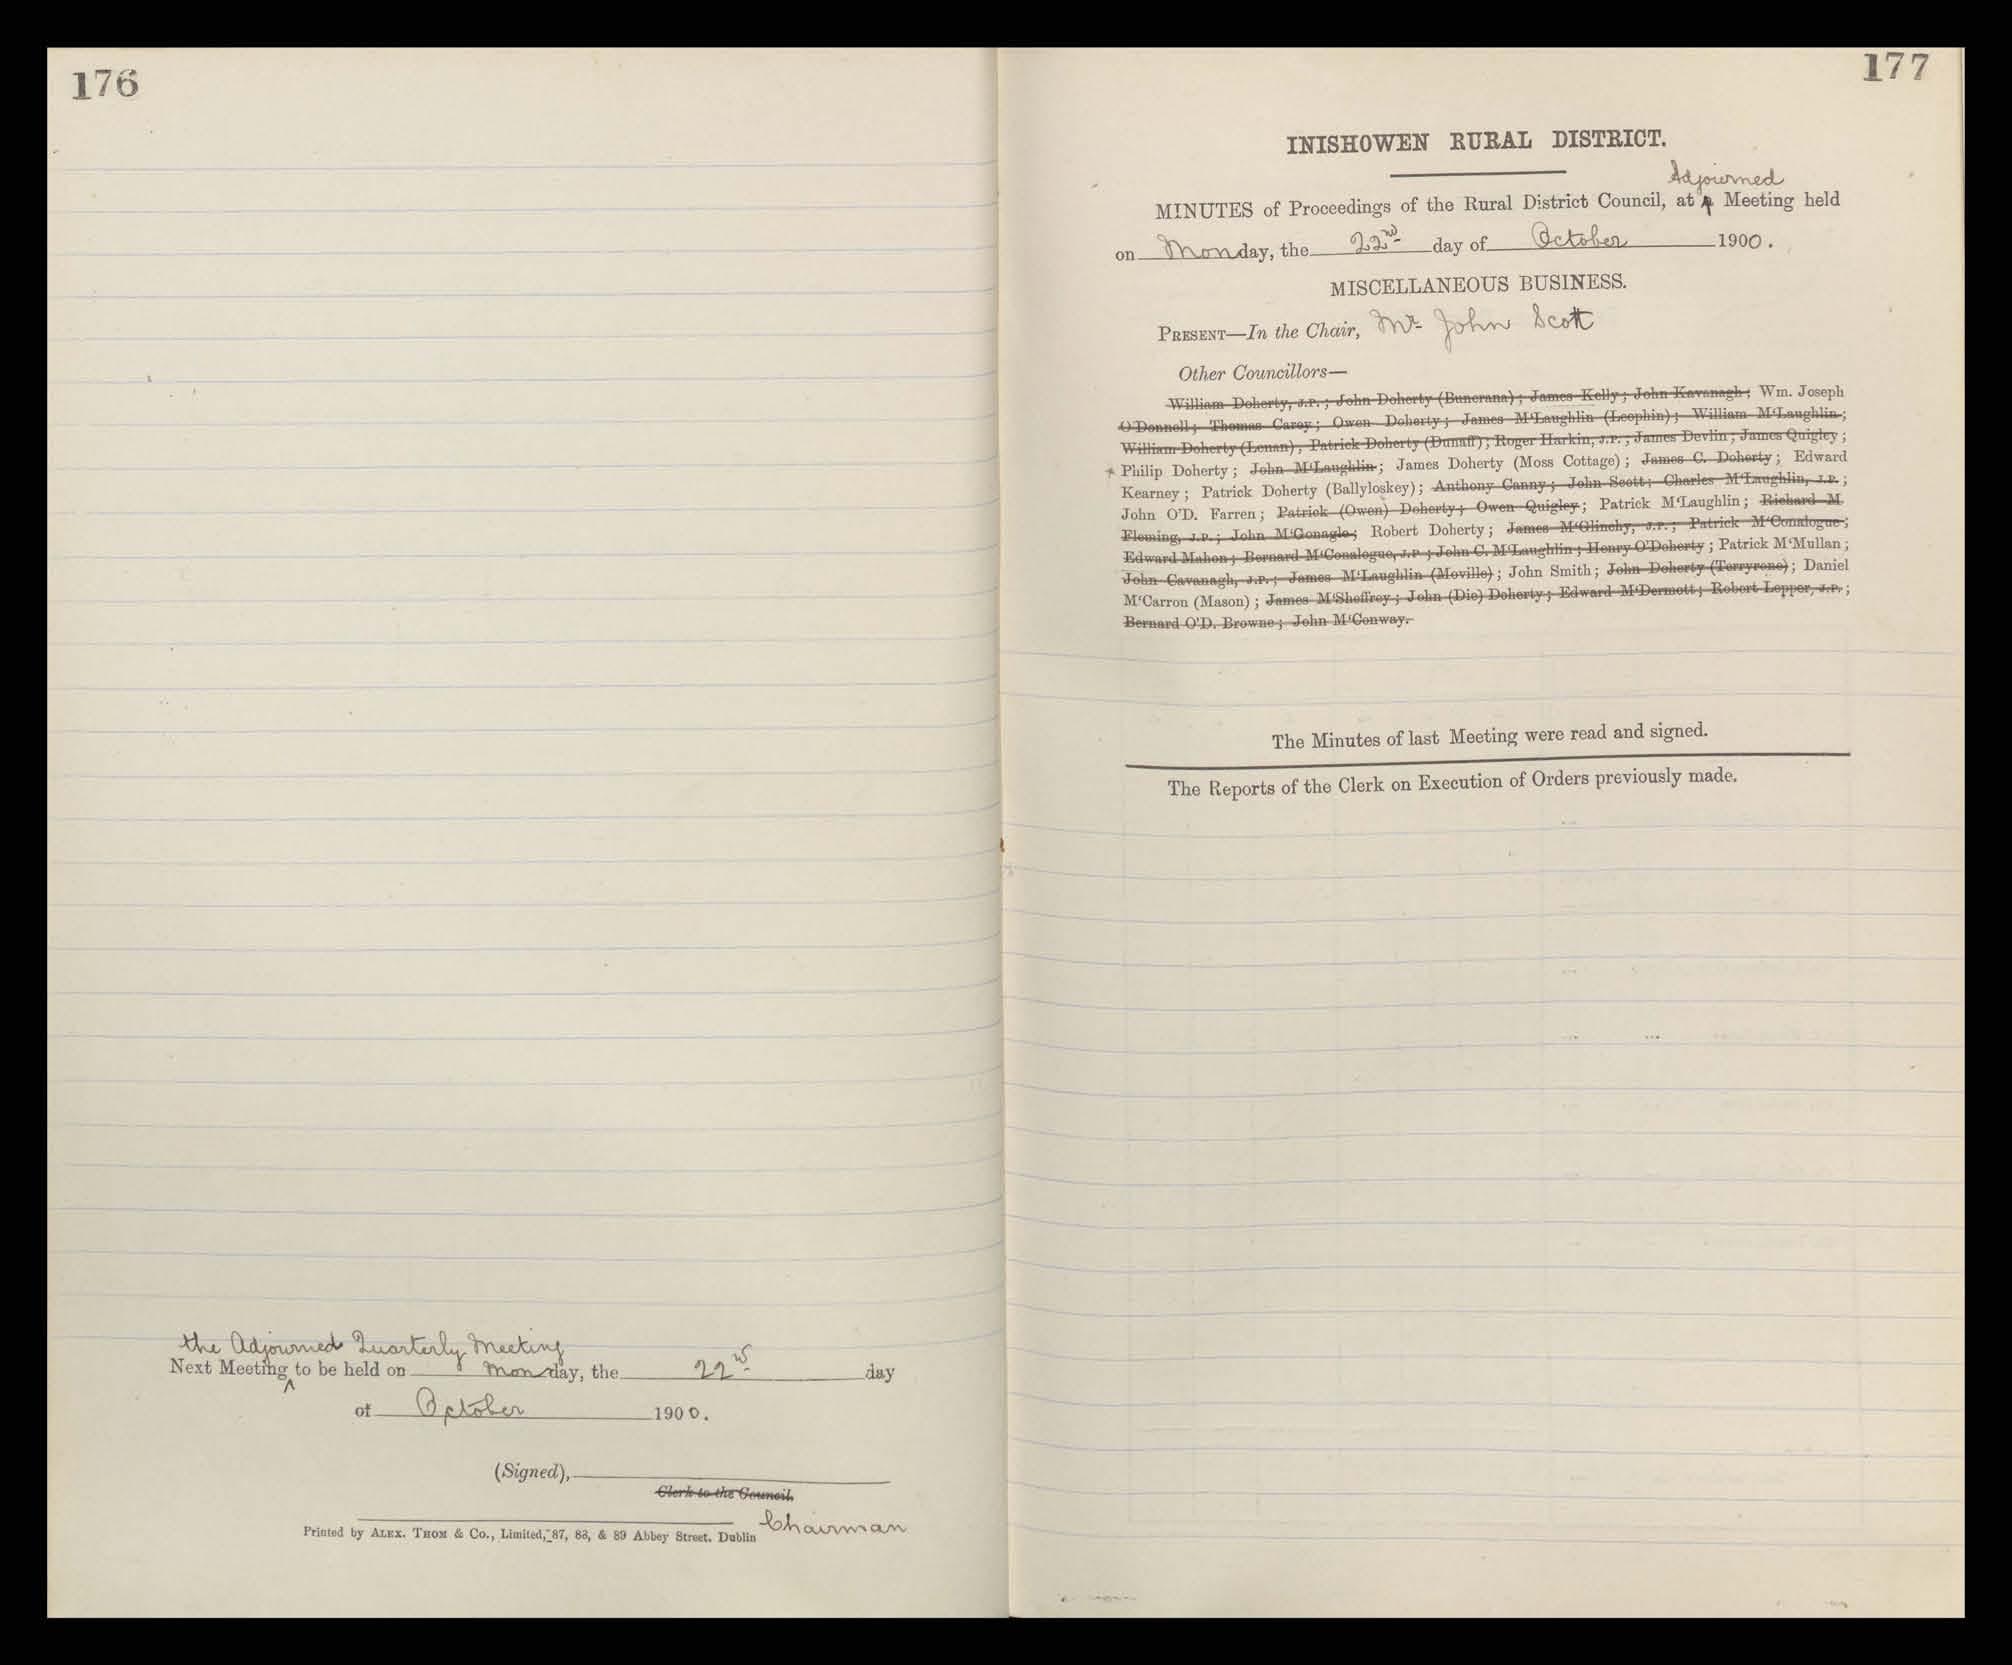 176
the Adjourned Quarterly Meeting
Next Meeting to be held on Monday, the 22nd day
of October 1900.
(Signed),
Clerk to the Council.
Chairman
Printed by ALEX. THOM & Co., Limited, 87, 88, & 89 Abbey Street. Dublin
177
INISHOWEN RURAL DISTRICT.
Adjourned
MINUTES of Proceedings of the Rural District Council, at a Meeting held
on Monday, the 22nd day of October 1900.
MISCELLANEOUS BUSINESS.
PRESENT—In the Chair, Mr John Scott
Other Councillors—
William Doherty, J.P.; John Doherty (Buncrana); James Kelly; John Kavanagh; Wm. Joseph
O'Donnell; Thomas Carey; Owen Doherty; James M'Laughlin (Leophin); William M'Laughlin;
William Doherty (Lenan); Patrick Doherty (Dunaff); Roger Harkin, J.P.; James Devlin; James Quigley;
Philip Doherty; John M'Laughlin; James Doherty (Moss Cottage); James C. Doherty; Edward
Kearney; Patrick Doherty (Ballyloskey); Anthony Canny; John Scott; Charles M'Laughlin, J.P.;
John O'D. Farren; Patrick (Owen) Doherty; Owen Quigley; Patrick M'Laughlin; Richard M.
Fleming, J.P.; John M'Gonagle; Robert Doherty; James M'Glinchy, J.P.; Patrick M'Conalogue;
Edward Mahon; Bernard M'Conalogue, J.P.; John C. M'Laughlin; Henry O'Doherty; Patrick M'Mullan;
John Cavanagh, J.P.; James M'Laughlin (Moville); John Smith; John Doherty (Terryrone); Daniel
M'Carron (Mason); James M'Sheffrey; John (Die) Doherty; Edward M'Dermott; Robert Lepper, J.P.;
Bernard O'D. Browne; John M'Conway.
The Minutes of last Meeting were read and signed.
The Reports of the Clerk on Execution of Orders previously made.